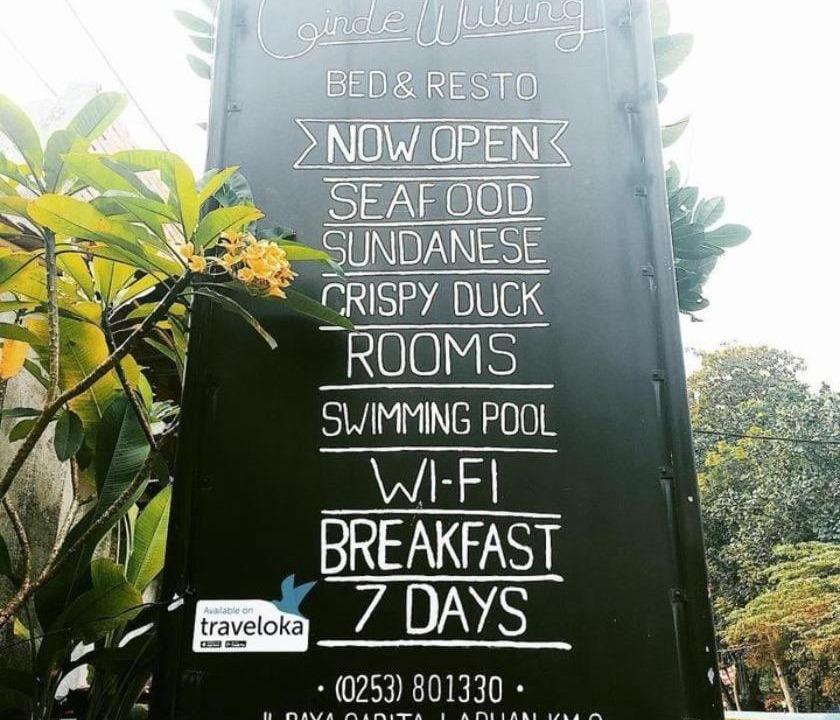 Ginde Wulung
BED & RESTO
NOW OPEN
SEAFOOD
SUNDANESE
CRISPY DUCK
ROOMS
SWIMMING POOL
WI-FI
BREAKFAST
7 DAYS
Available on
traveloka
• (0253) 801330 •
JL RAYA CARITA LABUAN KM 9